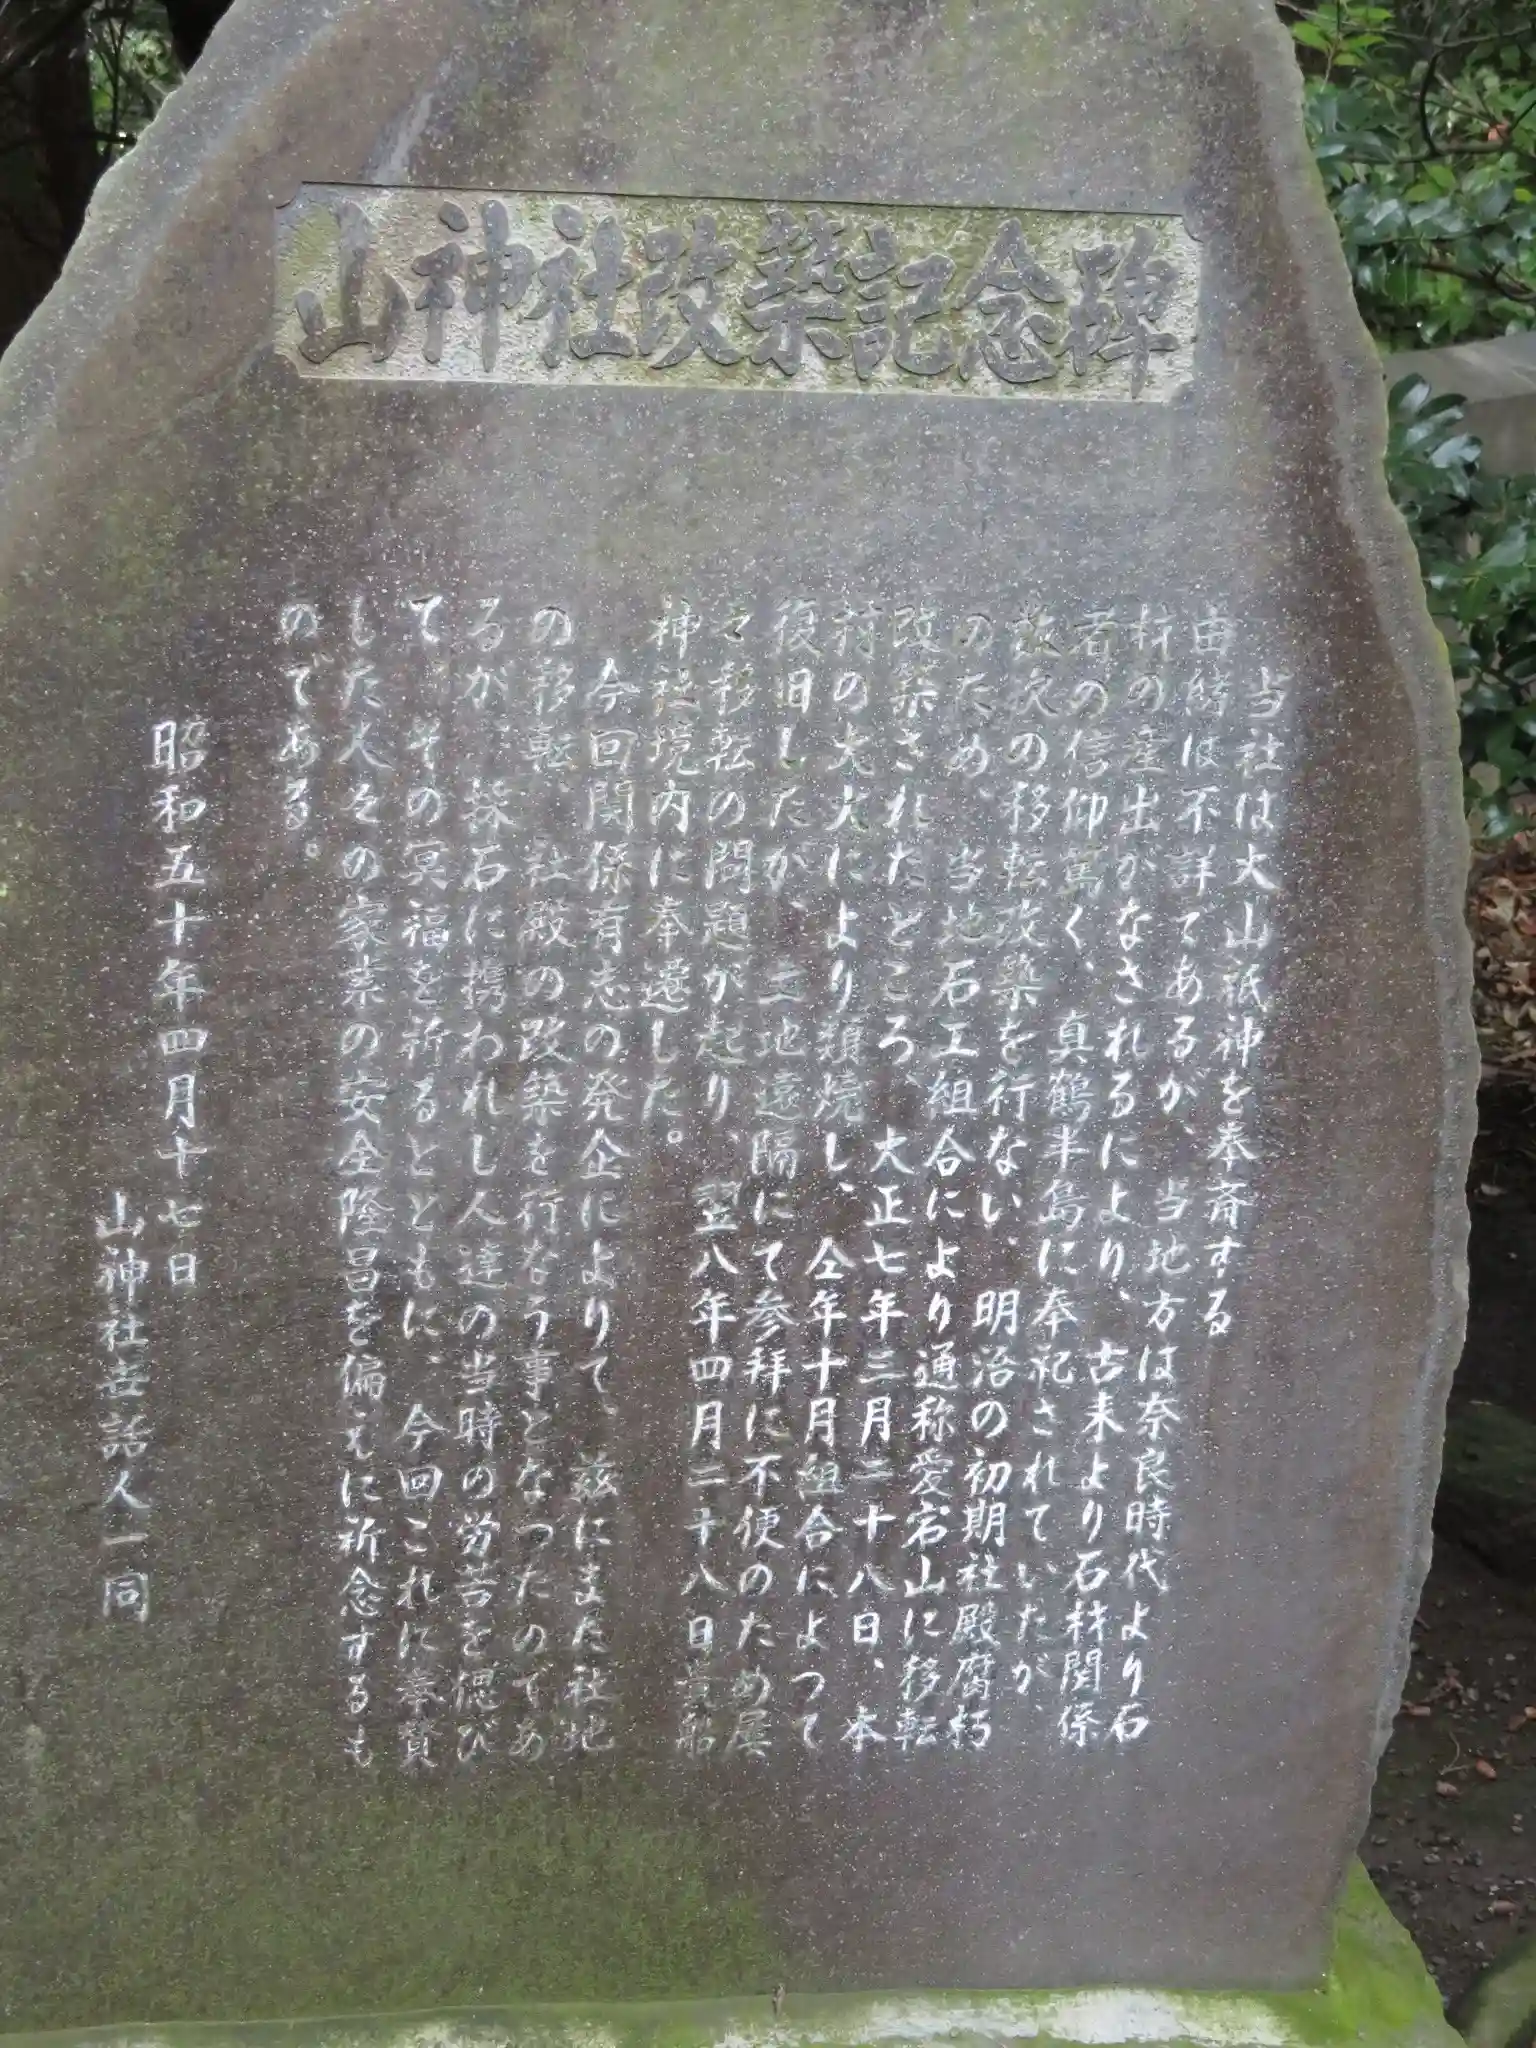 山神社改築記念碑
当社は大山祇神を奉斎する
由緒は不詳てあるが、当地方は奈良時代より石
材の産出がなされるにより、古来より石材関係
者の信仰篤く、真鶴半島に奉祀されていたが、
数次の移転改築を行ない、明治の初期社殿腐朽
のため、当地石工組合により通称愛宕山に移転
改築されたところ、大正七年三月二十八日、本
村の大火により類焼し、仝年十月組合によつて
復旧したが、立地遠隔にて参拝に不便のため屡
々移転の問題が起り、翌八年四月二十八日貴船
神社境内に奉遷した。
今回関係有志の発企によりて、茲にまた社地
の移転、社殿の改築を行なう事となつたのであ
るが、採石に携われし人達の当時の労苦を偲び
て、その冥福を祈るとともに、今回これに奉賛
した人々の家業の安全隆昌を偏えに祈念するも
のである。
昭和五十年四月十七日
山神社世話人一同